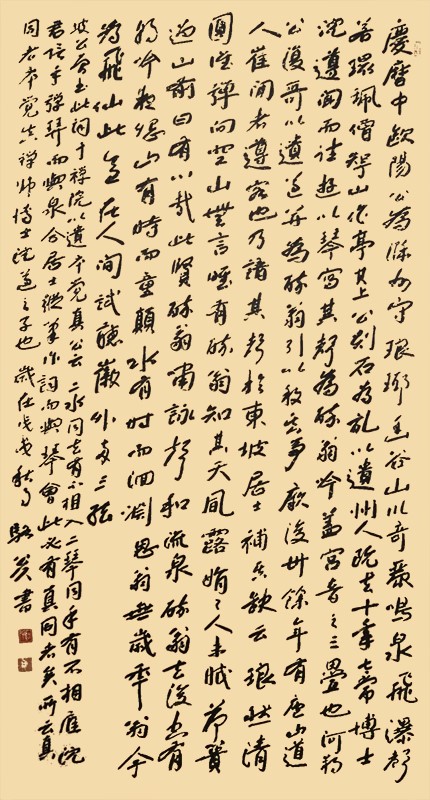 慶曆中歐陽公為滁州守琅琊幽谷山川奇麗鳴泉飛瀑聲
若環珮僧智仙作亭其上公刻石為記以遺州人既去十年太常博士
沈遵聞而往遊以琴寫其聲為醉翁吟蓋宮音之三疊也河朔
公復歌以遺遵并為醉翁引以敘其事厥後卅餘年有廬山道
人崔閑者遵客也乃譜其聲於東坡居士補其缺云琅然清
圜誰彈向空山無言唯有醉翁知其天風露娟々人未眠荷蕢
過山前曰有心哉此賢醉翁嘯詠聲和流泉醉翁去後空有
朝吟夜怨山有時而童顛水有時而洄淵思翁無歲年翁今
為飛仙此意在人間試聽徽外兩三絃
坡公嘗書此詞于禪院以遺本覺真公云二水同去有不相入二琴同手有不相應沈
君信手彈琴而與泉合居士縱筆作詞而與琴會此必有真同者矣所云真
同者本覺真禪師博士沈遵之子也歲在戊戌秋月駱書